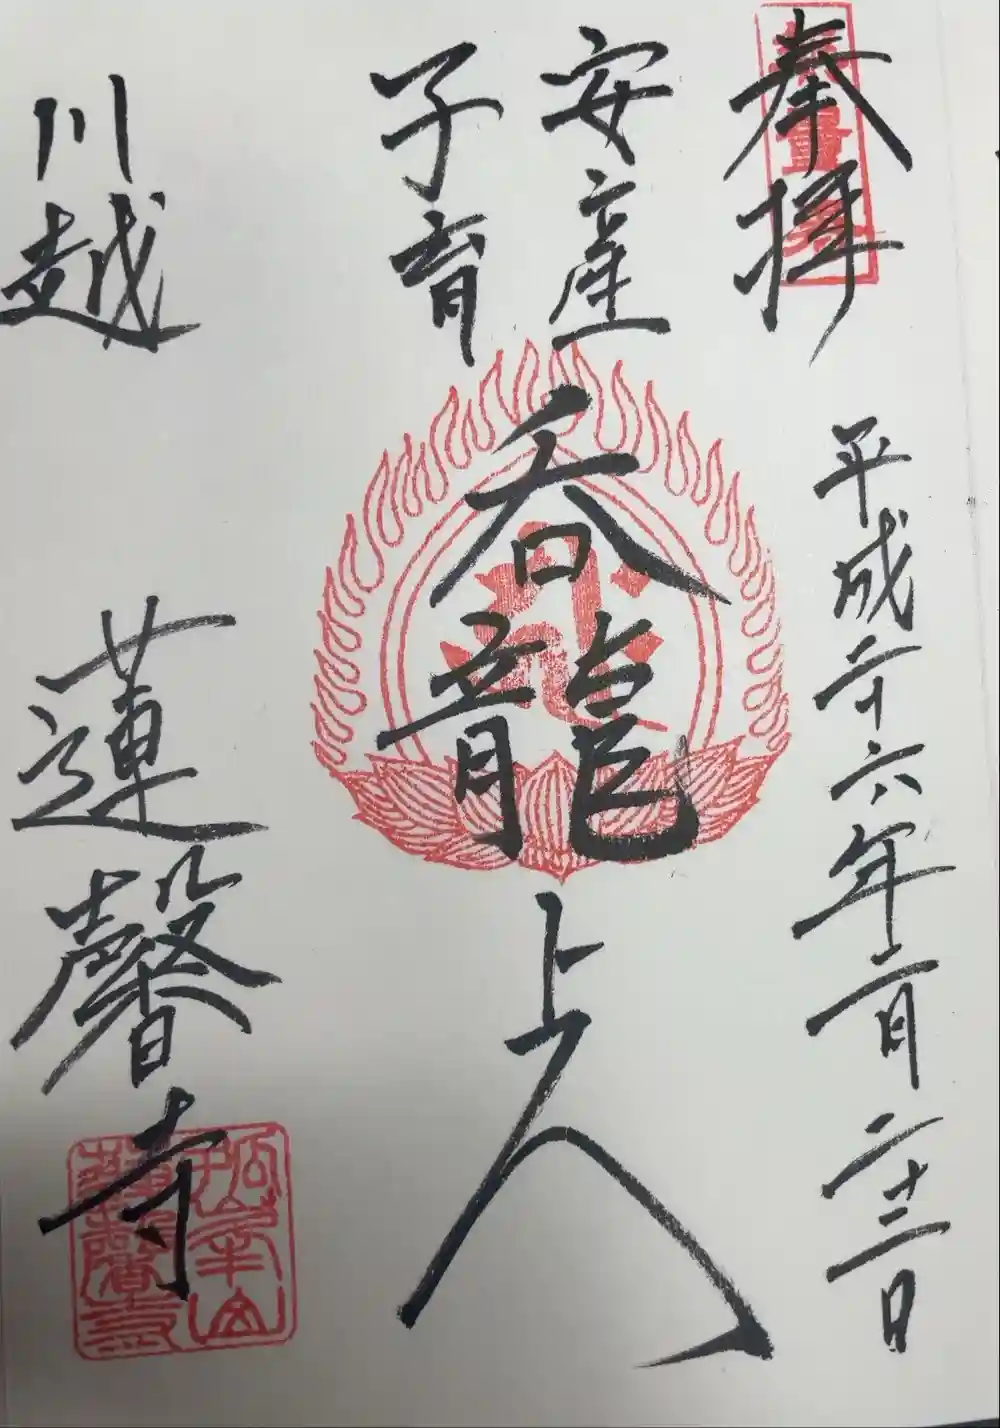 奉拝
平成二十六年二月二十二日
安産
子育
呑龍上人
川越
蓮馨寺
孤峯山
蓮馨寺